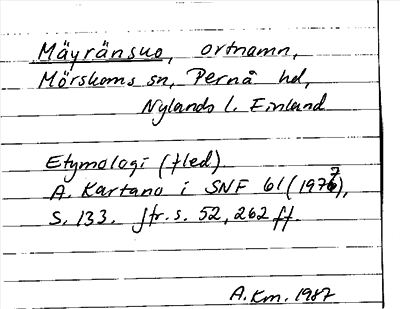 Mäyränsuo, ortnamn,
Mörskoms sn, Pernå hd,
Nylands l. Finland
Etymologi (fled).
A. Kartano i SNF 61 (1977),
S. 133. Jfr. s. 52, 262 ff.
A.Km. 1987